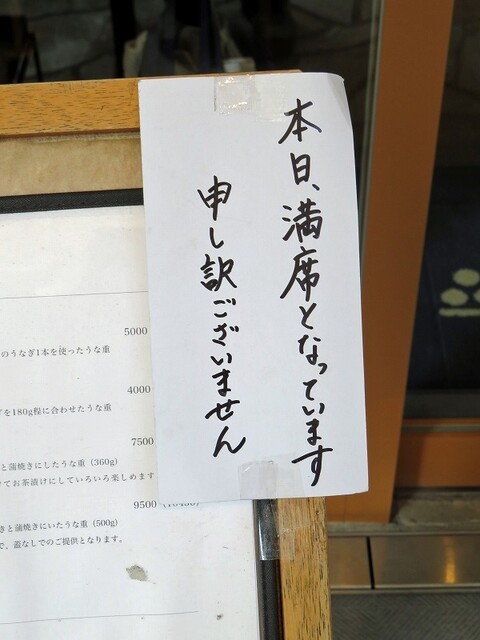 本日、満席となっています
申し訳ございません
5000
のうなぎ1本を使ったうな重
4000
を180g程に合わせたうな重
7500
と蒲焼きにしたうな重（360g）
てお茶漬けにしていろいろ楽しめます
9500
きと蒲焼きにいたうな重（500g）
で、蓋なしでのご提供となります。